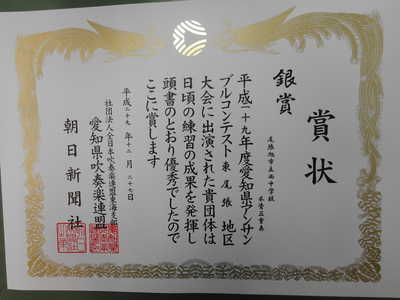 賞状
銀賞
尾張旭市立西中学校
平成二十九年度愛知県アンサン
ブルコンテスト東尾張地区
大会に出演された貴団体は
日頃の練習の成果を発揮し
頭書のとおり優秀でしたので
ここに賞します
平成二十九年十二月二十七日
社団法人全日本吹奏楽連盟東海支部
愛知県吹奏楽連盟
朝日新聞社